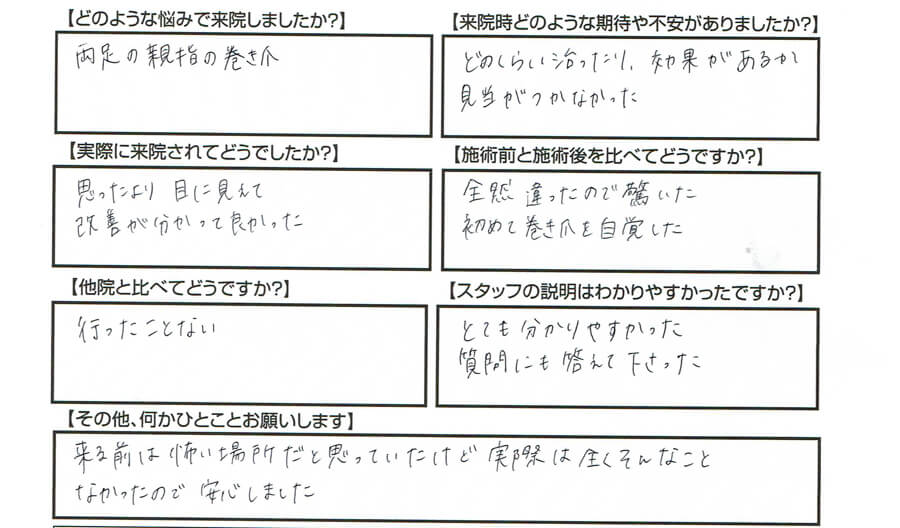 【どのような悩みで来院しましたか?】
両足の親指の巻き爪
【来院時どのような期待や不安がありましたか?】
どのくらい治ったり、効果があるか
見当がつかなかった
【実際に来院されてどうでしたか?】
思ったより目に見えて
改善が分かって良かった
【施術前と施術後を比べてどうですか?】
全然違ったので驚いた
初めて巻き爪を自覚した
【他院と比べてどうですか?】
行ったことない
【スタッフの説明はわかりやすかったですか?】
とても分かりやすかった
質問にも答えて下さった
【その他、何かひとことお願いします】
来る前は怖い場所だと思っていたけど実際は全くそんなこと
なかったので安心しました